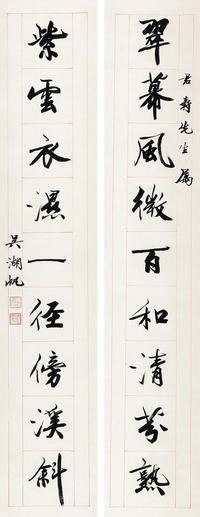 君寿先生属
翠幕風微百和清芬熟
紫雲衣濕一徑傍溪斜
吳湖帆